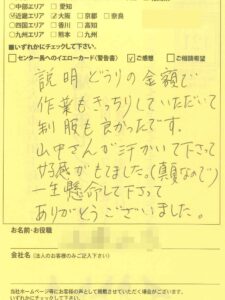 ○中部エリア □愛知
Ⓥ近畿エリア ☑大阪 □京都 □奈良
○四国エリア □香川 □高知
○九州エリア □熊本 □九州
■いずれかにチェックして下さい。
□センター長へのイエローカード(警告書) ☑ご感想 □ご相談希望
説明どうりの金額で
作業もきっちりしていただいて
制服も良かったです。
山中さんが汗かいて下さって
好感がもてました。(真夏なので)
一生懸命して下さって
ありがとうございました。
お名前・お役職
会社名 (法人のお客様のみご記入下さい)
当社ホームページ等にお客様の声として掲載させていただく場合がございます。
いずれかにチェックして下さい。